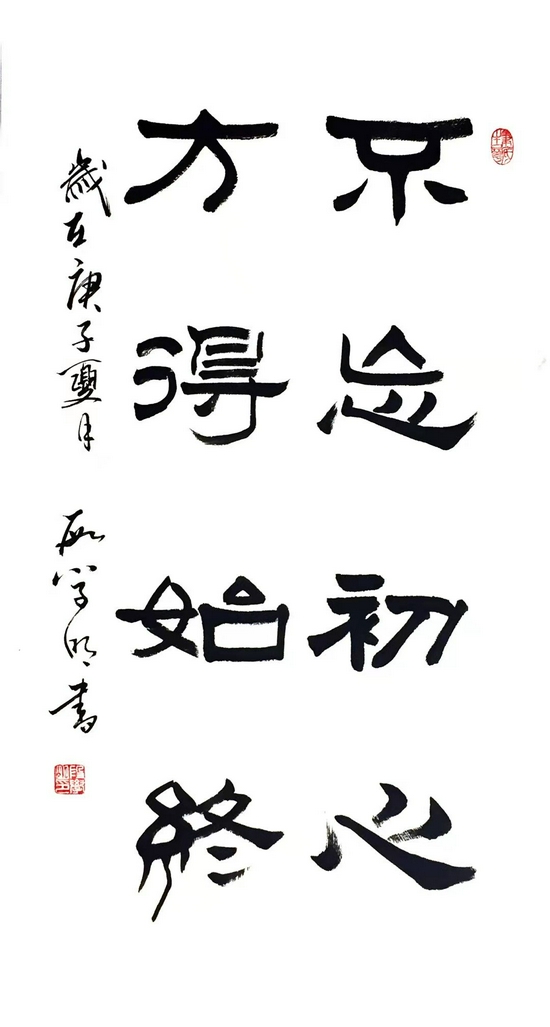 不忘初心
方得始終
歲在庚子夏月 段学明書